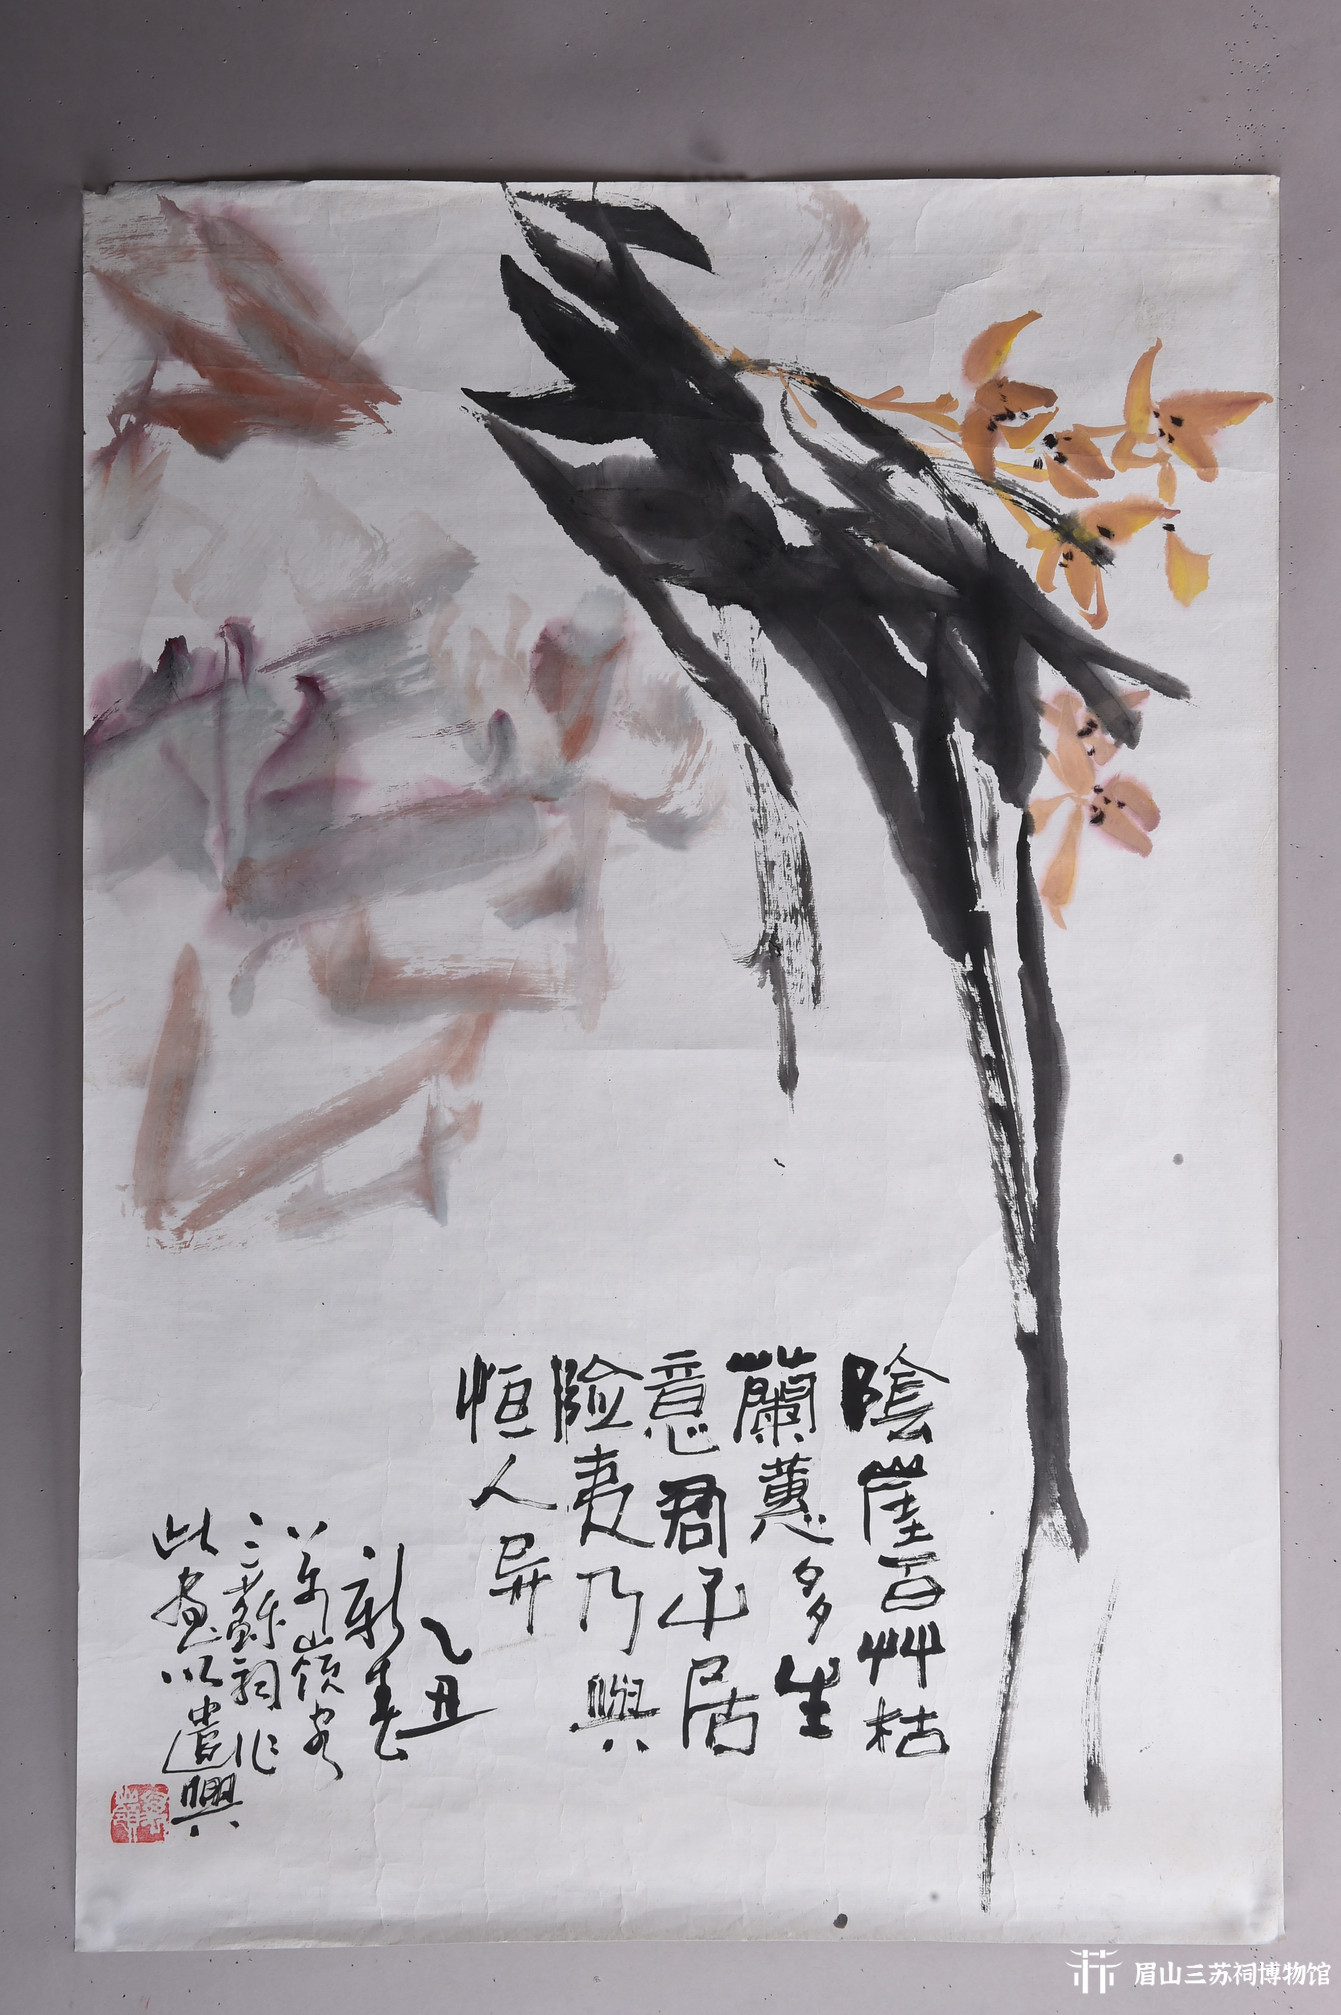 陰崖百艸枯
蘭蕙多生
意君子居
險夷乃與
恒人异
乙丑
新春
嶺客
三蘇祠作
此畫以遣興
眉山三苏祠博物馆